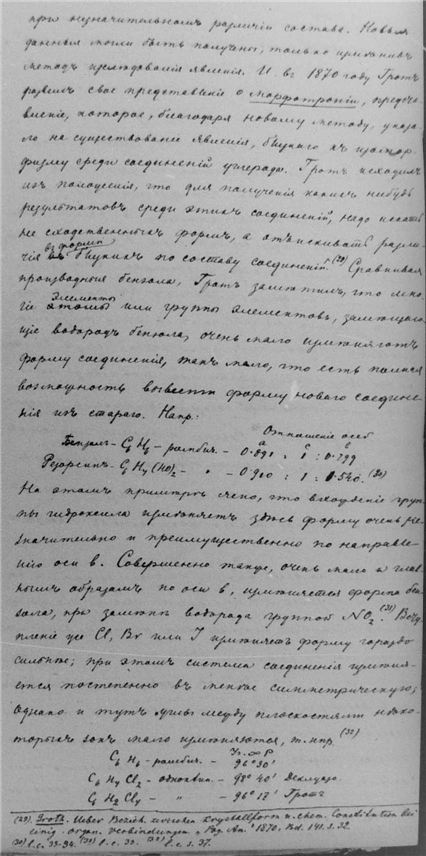 при незначительномъ различіи состава. Новыя
данныя могли быть получены, только измѣнивъ
методъ изслѣдованія явленія. И въ 1870 году Гротъ
развилъ свое представленіе о морфотропіи,
которое, благодаря новому методу, указа-
ло на существованіе явленія, близкаго къ изомор-
физму среди соединеній углерода. Гротъ исходилъ
изъ положенія, что для полученія какихъ нибудь
результатовъ среди этихъ соединеній, надо искать
не сходственныхъ формъ, а отыскивать разли-
чія въ формѣ близкихъ по составу соединеній. (29) Сравнивая
производныя бензола, Гротъ замѣтилъ, что мно-
гіе элементы или группы элементовъ, замѣщаю-
щіе водородъ бензола, очень мало измѣняютъ
форму соединенія, такъ мало, что есть полная
возможность вывести форму новаго соедине-
нія изъ стараго. Напр:
Отношеніе осей
a b c
Бензолъ - C6 H6 - ромбич. - 0.891 : 1 : 0.799
Резорсинъ - C6 H4 (HO)2 - " - 0.910 : 1 : 0.540. (30)
На этомъ примѣрѣ ясно, что вхожденіе груп-
пы гидроксила измѣняетъ здѣсь форму очень не-
значительно и преимущественно по направле-
нію оси в. Совершенно также, очень мало и глав-
нымъ образомъ по оси в, измѣняется форма бен-
зола, при замѣнѣ водорода группой NO2. (31) Всту-
пленіе же Cl, Br или I измѣняетъ форму гораздо
сильнѣе; при этомъ система соединенія измѣня-
ется постепенно въ менѣе симметрическую;
Однако и тутъ углы между плоскостями нѣко-
торыхъ зонъ мало измѣняются, т. напр. (32)
Уг. ∞ P
C6 H6 - ромбич. - 96° 30'
C6 H4 Cl2 - одноклин. - 98° 40' Деклуазо.
C6 H2 Cl4 - " - 96° 17' Гротъ
(29). Groth. Ueber Bezieh. zwischen Krystallform u. chem. Constitution bei
einig. organ. Verbindungen. Pog. An. 1870. Bd. 141. S. 32.
(30) l. c. 33-34. (31) l. c. 35. (32) l. c. S. 37.